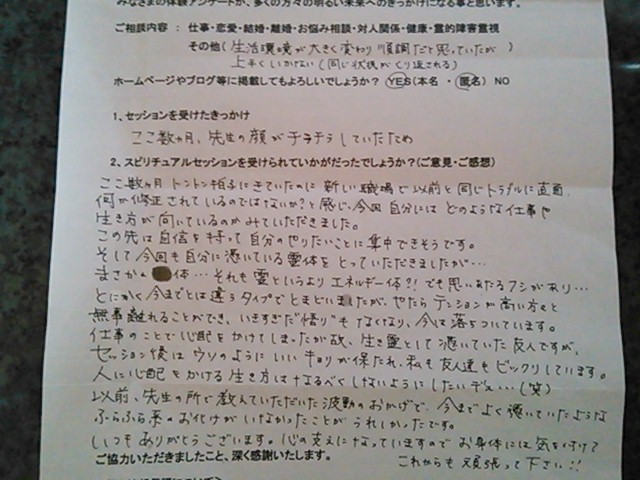 みなさまの体験アンケートが、多くの方々の明るい未来へのきっかけになる事と思います。
ご相談内容 : 仕事・恋愛・結婚・離婚・お悩み相談・対人関係・健康・霊的障害霊視
その他( 生活環境が大きく変わり 順調だと思っていたが )
上手くいかない (同じ状況がくり返される)
ホームページやブログ等に掲載してもよろしいでしょうか? YES(本名 ・ 匿名) NO
1、セッションを受けたきっかけ
ここ数ヵ月、先生の顔がチラチラしていたため
2、スピリチュアルセッションを受けられていかがだったでしょうか?(ご意見・ご感想)
ここ数ヶ月 トントン拍子にきていたのに 新しい職場で以前と同じトラブルに直面、
何か修正されているのではないか?と感じ、今回 自分には どのような仕事や
生き方が向いているのか みていただきました。
この先は自信を持って自分のやりたいことに集中できそうです。
そして今回も自分に憑いている霊体をとっていただきましたが…
まさか 体… それも霊というより エネルギー体?! でも思いあたるフシがあり…
とにかく今までとは違うタイプでとまどいましたが、やたらテンションが高い方々と
無事離れることができ、いきすぎた"悟り"もなくなり、今は落ちついています。
仕事のことで心配をかけてしまったが故、生き霊として憑いていた友人ですが、
セッション後は ウソのように いいキョリが保たれ、私も友人達も ビックリしています。
人に心配をかける生き方はなるべくしないようにしたいデス…(笑)
以前、先生の所で教えていただいた波動のおかげで、今までよく憑いていたような
ふらふら系のお化けがいなかったことが うれしかったです。
いつもありがとうございます。心の支えになっていますので お身体には気を付けて
ご協力いただきましたこと、深く感謝いたします。
これからも 頑張って下さい!!